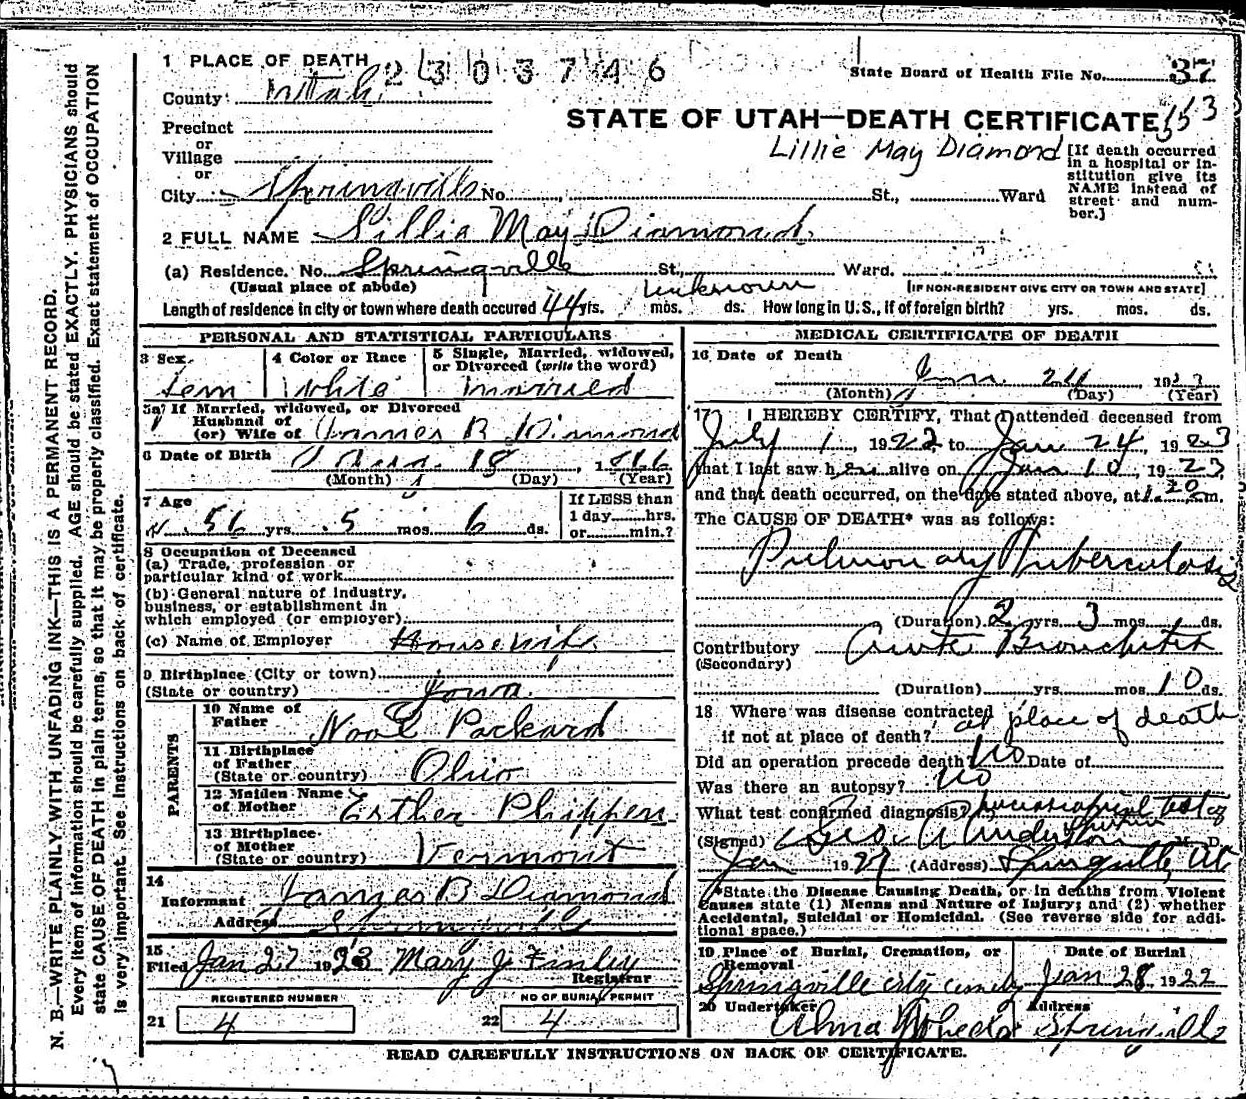 1 PLACE OF DEATH 2303746 State Board of Health File No. 37
County Utah
STATE OF UTAH—DEATH CERTIFICATE 553
Precinct
or
Village
or
City Springville No. St., Ward
Lillie May Diamond
[If death occurred
in a hospital or in-
stitution give its
NAME instead of
street and num-
ber.]
2 FULL NAME Lillia May Diamond
(a) Residence. No. Springville St., Ward.
(Usual place of abode) unknown [IF NON-RESIDENT GIVE CITY OR TOWN AND STATE]
Length of residence in city or town where death occured 44 yrs. mos. ds. How long in U.S., if of foreign birth? yrs. mos. ds.
PERSONAL AND STATISTICAL PARTICULARS
3 Sex 4 Color or Race 5 Single, Married, widowed,
or Divorced (write the word)
Fem White Married
5a If Married, widowed, or Divorced
Husband of
(or) Wife of James B Diamond
6 Date of Birth 18, 1866
(Month) (Day) (Year)
7 Age 56 yrs. 5 mos. 6 ds.
If LESS than
1 day hrs.
or min.?
8 Occupation of Deceased
(a) Trade, profession or
particular kind of work
(b) General nature of industry,
business, or establishment in
which employed (or employer)
(c) Name of Employer Housewife
9 Birthplace (City or town)
(State or country) Iowa
PARENTS
10 Name of
Father Noal Packard
11 Birthplace
of Father
(State or country) Ohio
12 Maiden Name
of Mother Esther Phippen
13 Birthplace
of Mother
(State or country) Vermont
14
Informant James B Diamond
Address Springville
15
Filed Jan 27 1923 Mary J Finley
Registrar
REGISTERED NUMBER NO OF BURIAL PERMIT
21 4 22 4
MEDICAL CERTIFICATE OF DEATH
16 Date of Death
Jan. 24, 1923
(Month) (Day) (Year)
17 I HEREBY CERTIFY, That I attended deceased from
July 1, 1922, to Jan 24, 1923
that I last saw her alive on Jan 10, 1923,
and that death occurred, on the date stated above, at 1.20 m.
The CAUSE OF DEATH* was as follows:
Pulmonary Tuberculosis
(Duration) 2 yrs. 3 mos. ds.
Contributory Acute Bronchitis
(Secondary)
(Duration) yrs. mos. 10 ds.
18 Where was disease contracted
if not at place of death? at place of death
Did an operation precede death? No Date of
Was there an autopsy? No
What test confirmed diagnosis? test of
(Signed) Geo. A Anderson M. D.
Jan 1927 (Address) Springville, Ut
*State the Disease Causing Death, or in deaths from Violent
Causes state (1) Menns and Nature of Injury; and (2) whether
Accidental, Suicidal or Homicidal. (See reverse side for addi-
tional space.)
19 Place of Burial, Cremation, or
Removal Date of Burial
Springville City Jan 28, 1922
20 Undertaker Address
Alma Springville
READ CAREFULLY INSTRUCTIONS ON BACK OF CERTIFICATE.
N. B.—WRITE PLAINLY WITH UNFADING INK—THIS IS A PERMANENT RECORD.
Every item of information should be carefully supplied. AGE should be stated EXACTLY. PHYSICIANS should
state CAUSE OF DEATH in plain terms, so that it may be properly classified. Exact statement of OCCUPATION
is very important. See instructions on back of certificate.